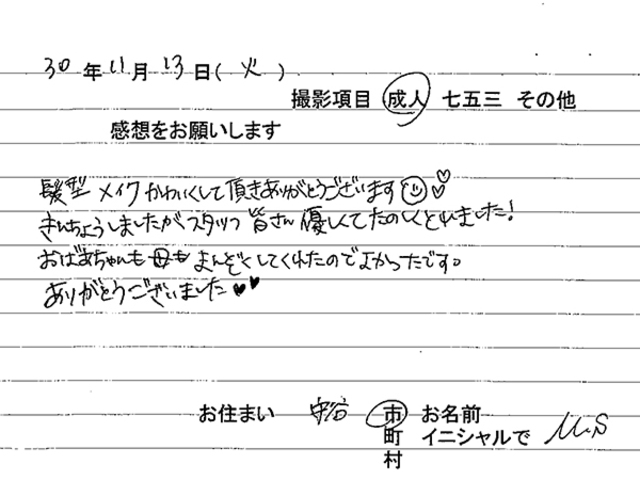 30年11月13日(火)
撮影項目 成人 七五三 その他
感想をお願いします
髪型 メイク かわいくして頂きありがとうございます
きんちょうしましたがスタッフ皆さん優しくてたのしくとれました!
おばあちゃんも母もまんぞくしてくれたのでよかったです。
ありがとうございました♥♥
お住まい 守谷 市 お名前
町 イニシャルで M.S
村